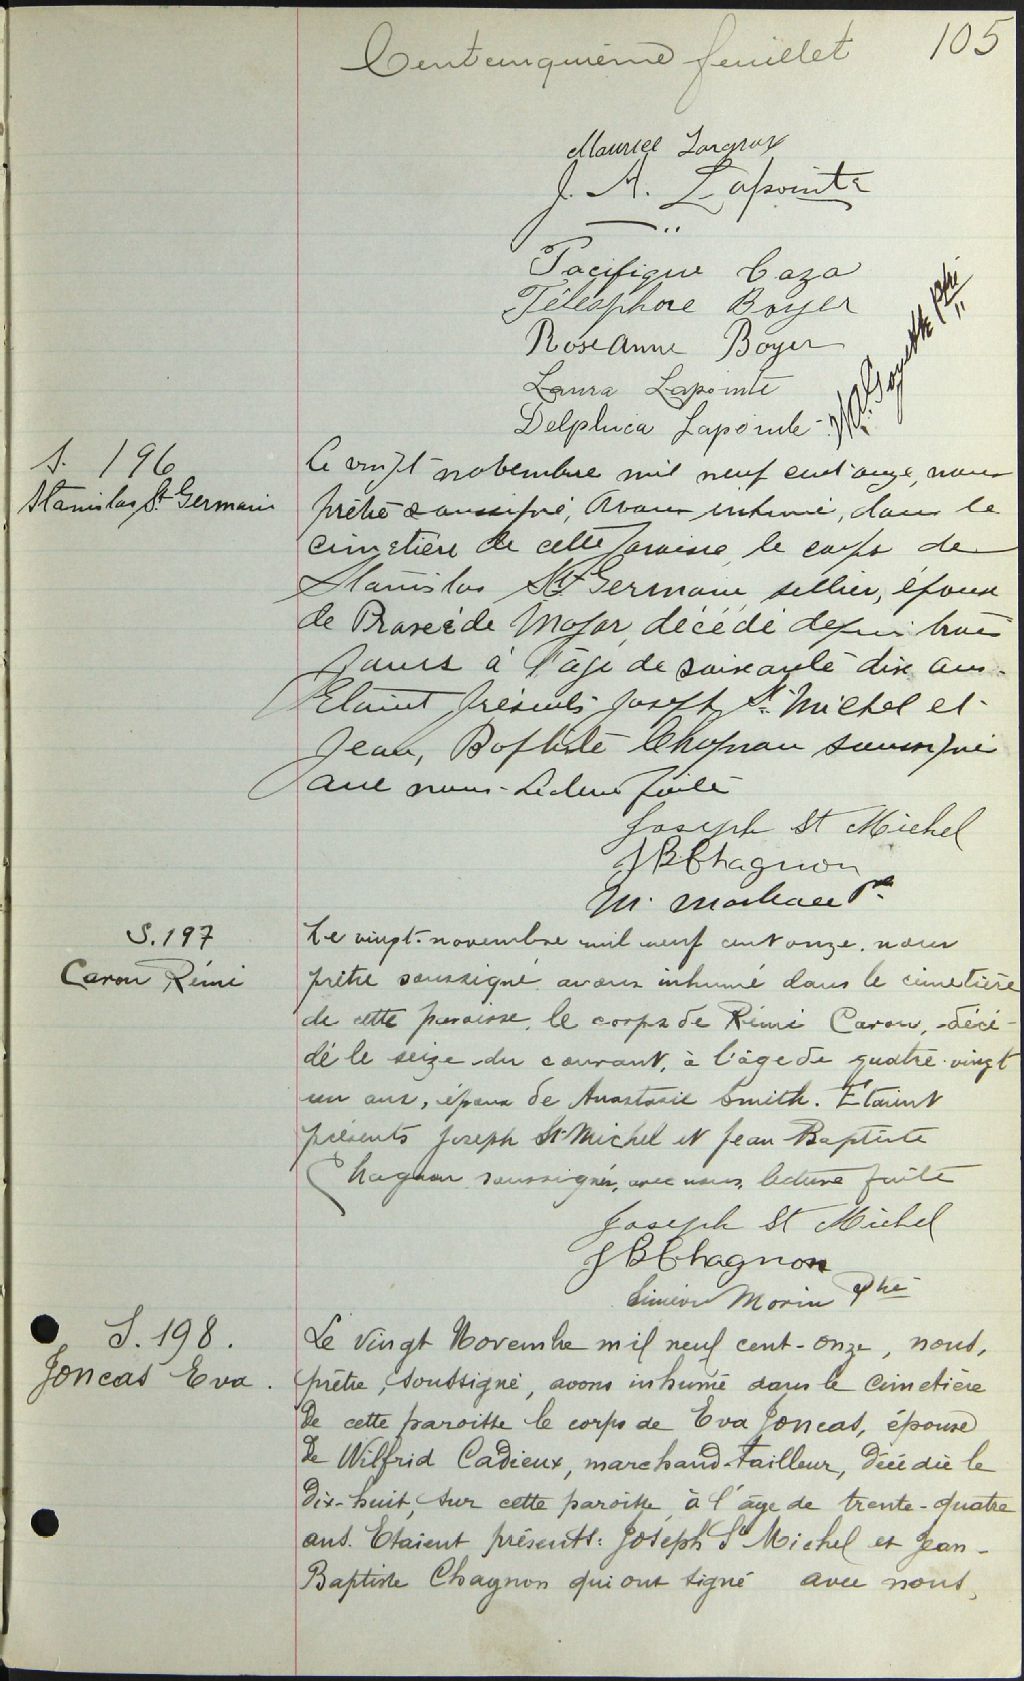 Centcinquième feuillet 105
Maurice
J. A. Lapointe
Pacifique Caza
Télesphore Boyer
RoseAnne Boyer
Laura Lapointe
Delphica Lapointe
Goyette Ptre
S. 196
Stanislas St Germain
Le vingt novembre mil neuf cent onze, nous
prêtre soussigné, avons inhumé, dans le
cimetière de cette paroisse, le corps de
Stanislas St Germain, sellier, époux
de Major, décédé depuis trois
jours à l'âge de soixante dix ans.
Etaient présents Joseph St. Michel et
Jean, Baptiste Chagnon soussignés
avec nous. Lecture faite
Joseph St Michel
JBChagnon
M.
S. 197
Caron Rémi
Le vingt-novembre mil neuf cent onze, nous
prêtre soussigné avons inhumé dans le cimetière
de cette paroisse, le corps de Rémi Caron, décé-
dé le seize du courant, à l'âge de quatre-vingt
un ans, époux de Anastasie Smith. Etaient
présents Joseph St Michel et Jean Baptiste
Chagnon soussignés, avec nous, lecture faite
Joseph St Michel
JBChagnon
Siméon Morin Ptre
S. 198.
Joncas Eva.
Le vingt Novembre mil neuf cent-onze, nous,
prêtre, soussigné, avons inhumé dans le cimetière
de cette paroisse le corps de Eva Joncas, épouse
de Wilfrid Cadieux, marchand-tailleur, décédée le
dix-huit, sur cette paroisse, à l'âge de trente-quatre
ans. Etaient présents: Joseph St Michel et Jean-
Baptiste Chagnon qui ont signé avec nous,